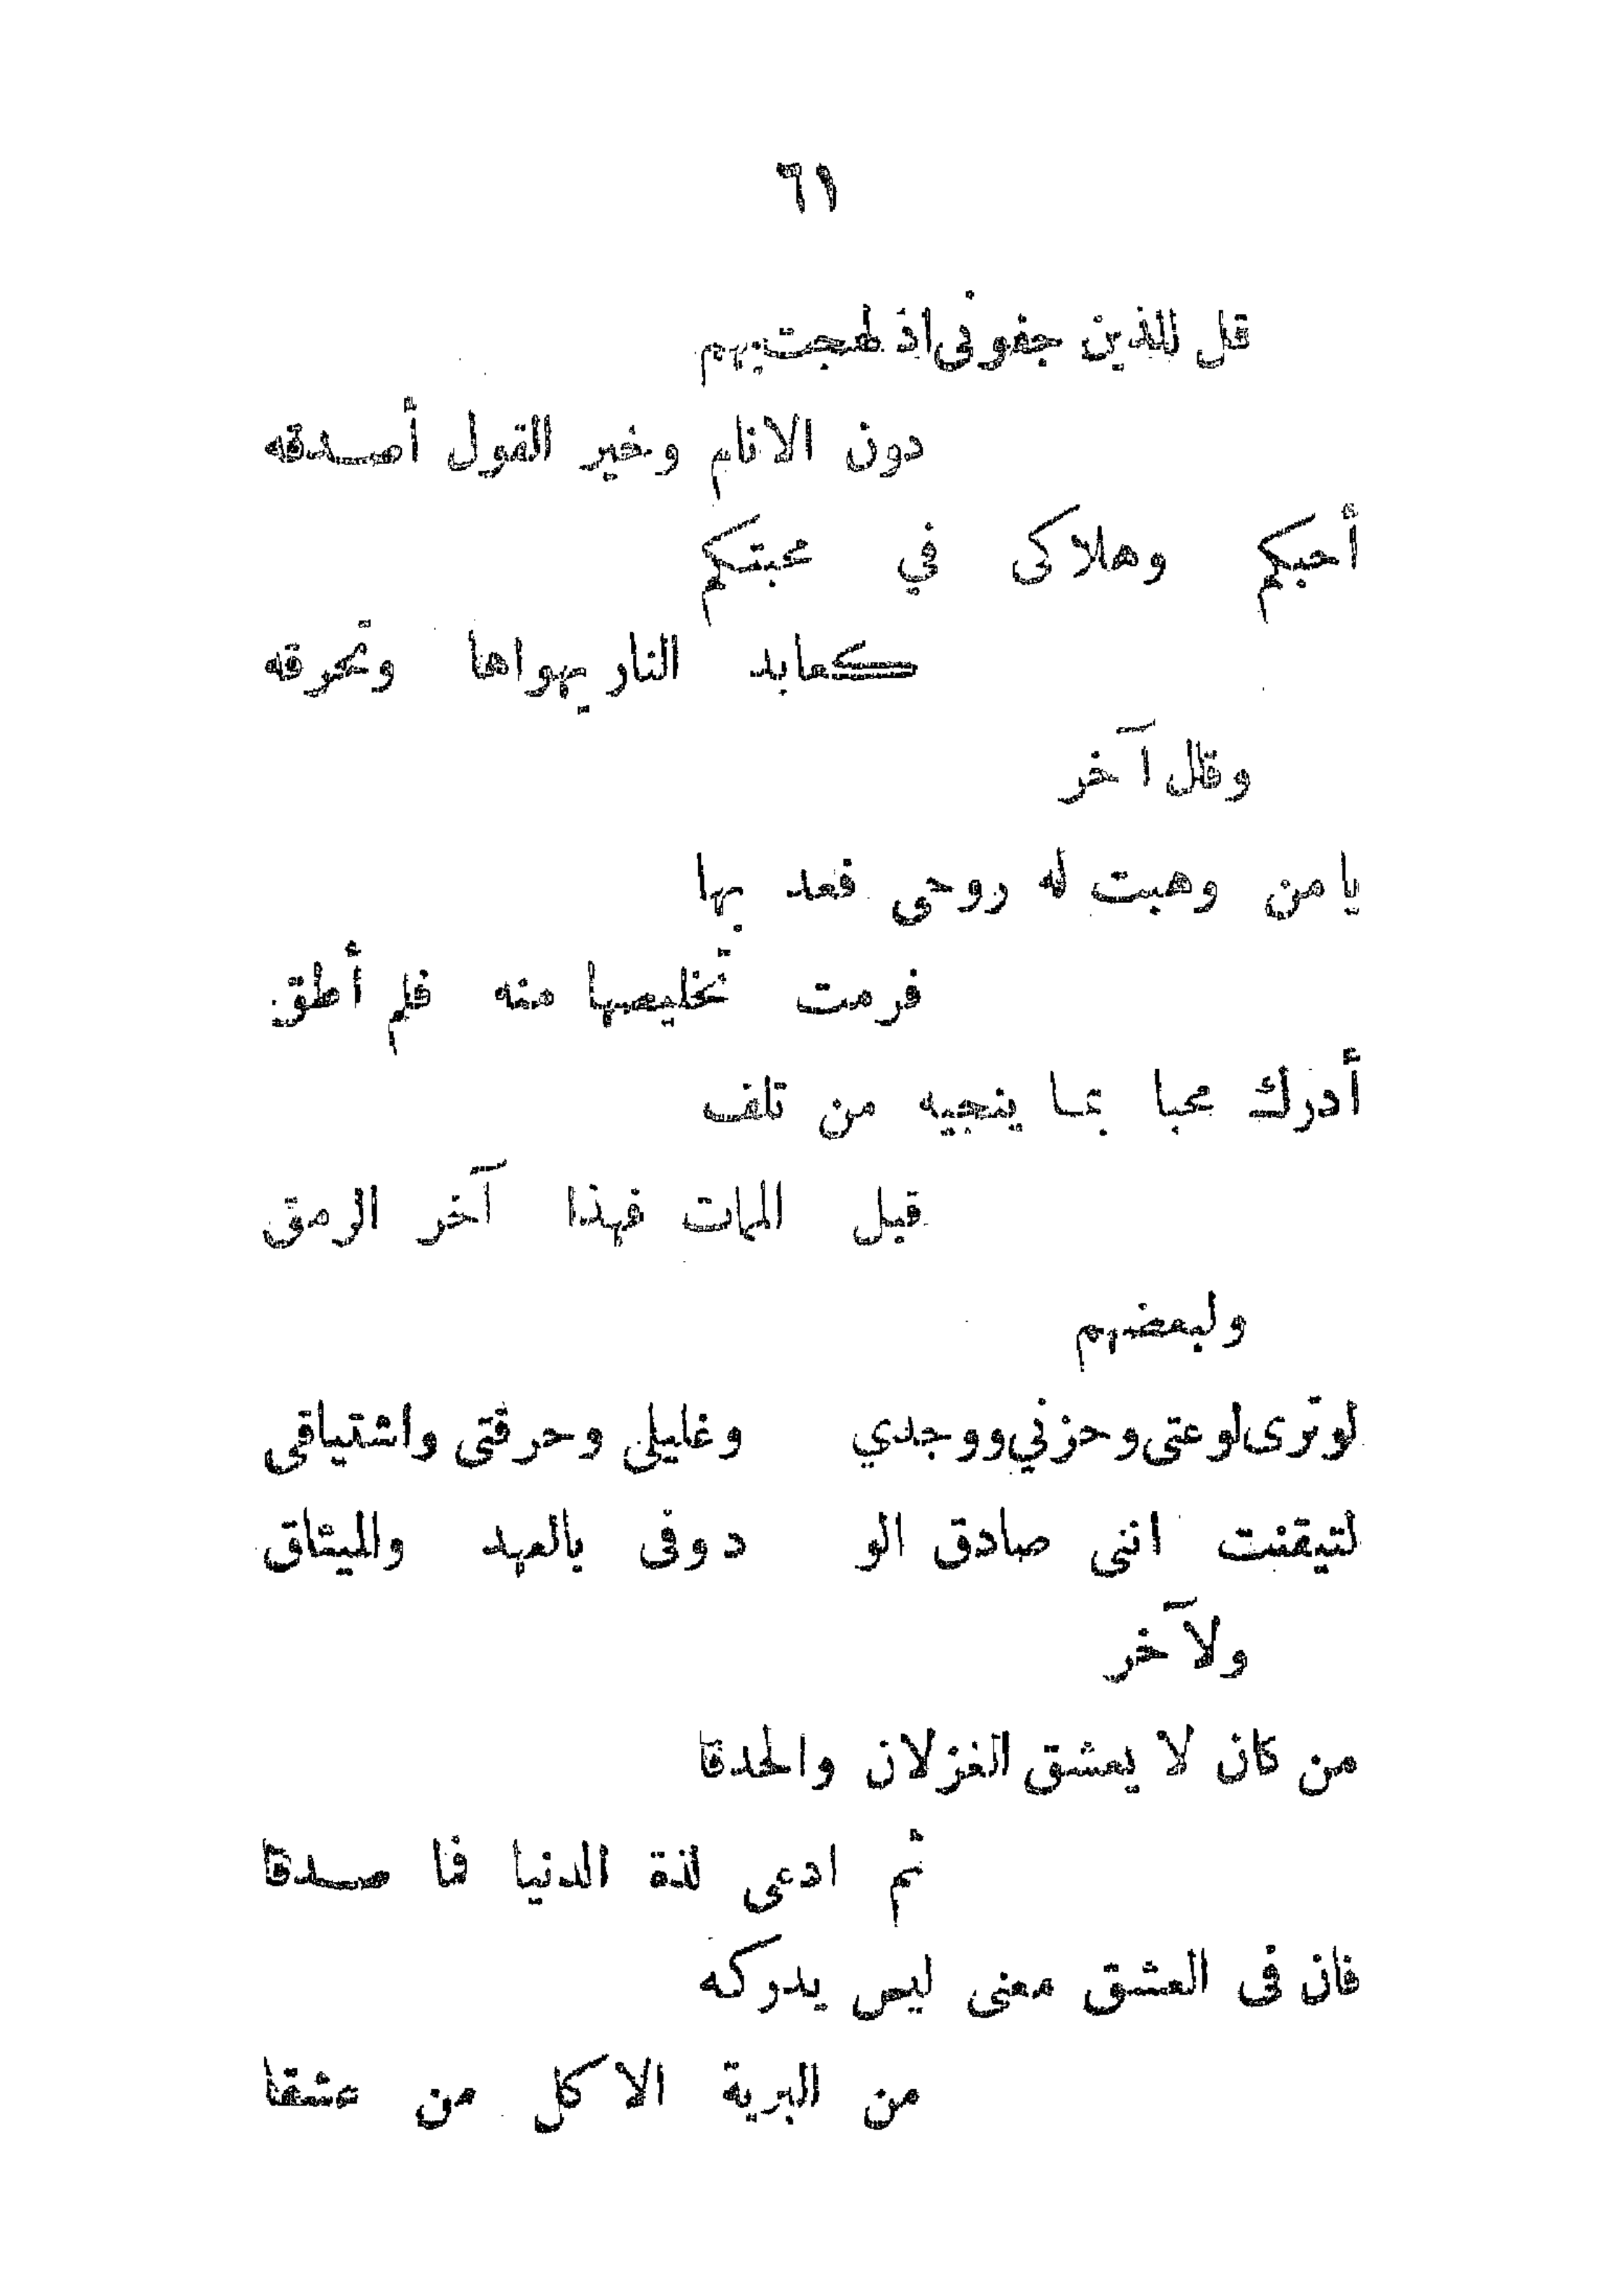 ٦١
قل للذين جفونى اذ لهجت بهم
دون الانام وخير القول أصدقه
أحبكم وهلاكى في محبتكم
كعابد النار يهواها وتحرقه
وقال آخر
يا من وهبت له روحى فعد بها
فرمت تخليصها منه فلم أطق
أدرك محبا بما ينجيه من تلف
قبل المات فهذا آخر الرمق
ولبعضهم
لو ترى لوعتى وحزني ووجدي وغليلى وحرقتى واشتياقى
لتيقنت اننى صادق الو د وفى بالعهد والميثاق
ولآخر
من كان لا يعشق الغزلان والحدقا
ثم ادعى لذة الدنيا فما صدقا
فان فى العشق معنى ليس يدركه
من البرية الا كل من عشقا